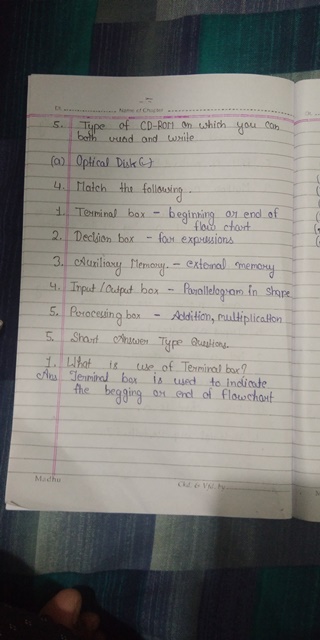 Dt. Name of Chapter
5. Type of CD-ROM on which you can
both read and write
(a) Optical Disk
4. Match the following.
1. Terminal box - beginning or end of
flow chart
2. Decision box - for expressions
3. Auxiliary Memory. - external memory
4. Input/Output box - Parallelogram in shape
5. Processing box - Addition, multiplication
5. Short Answer Type Questions.
1. What is use of Terminal box?
Ans Terminal box is used to indicate
the begging or end of flowchart
Madhu